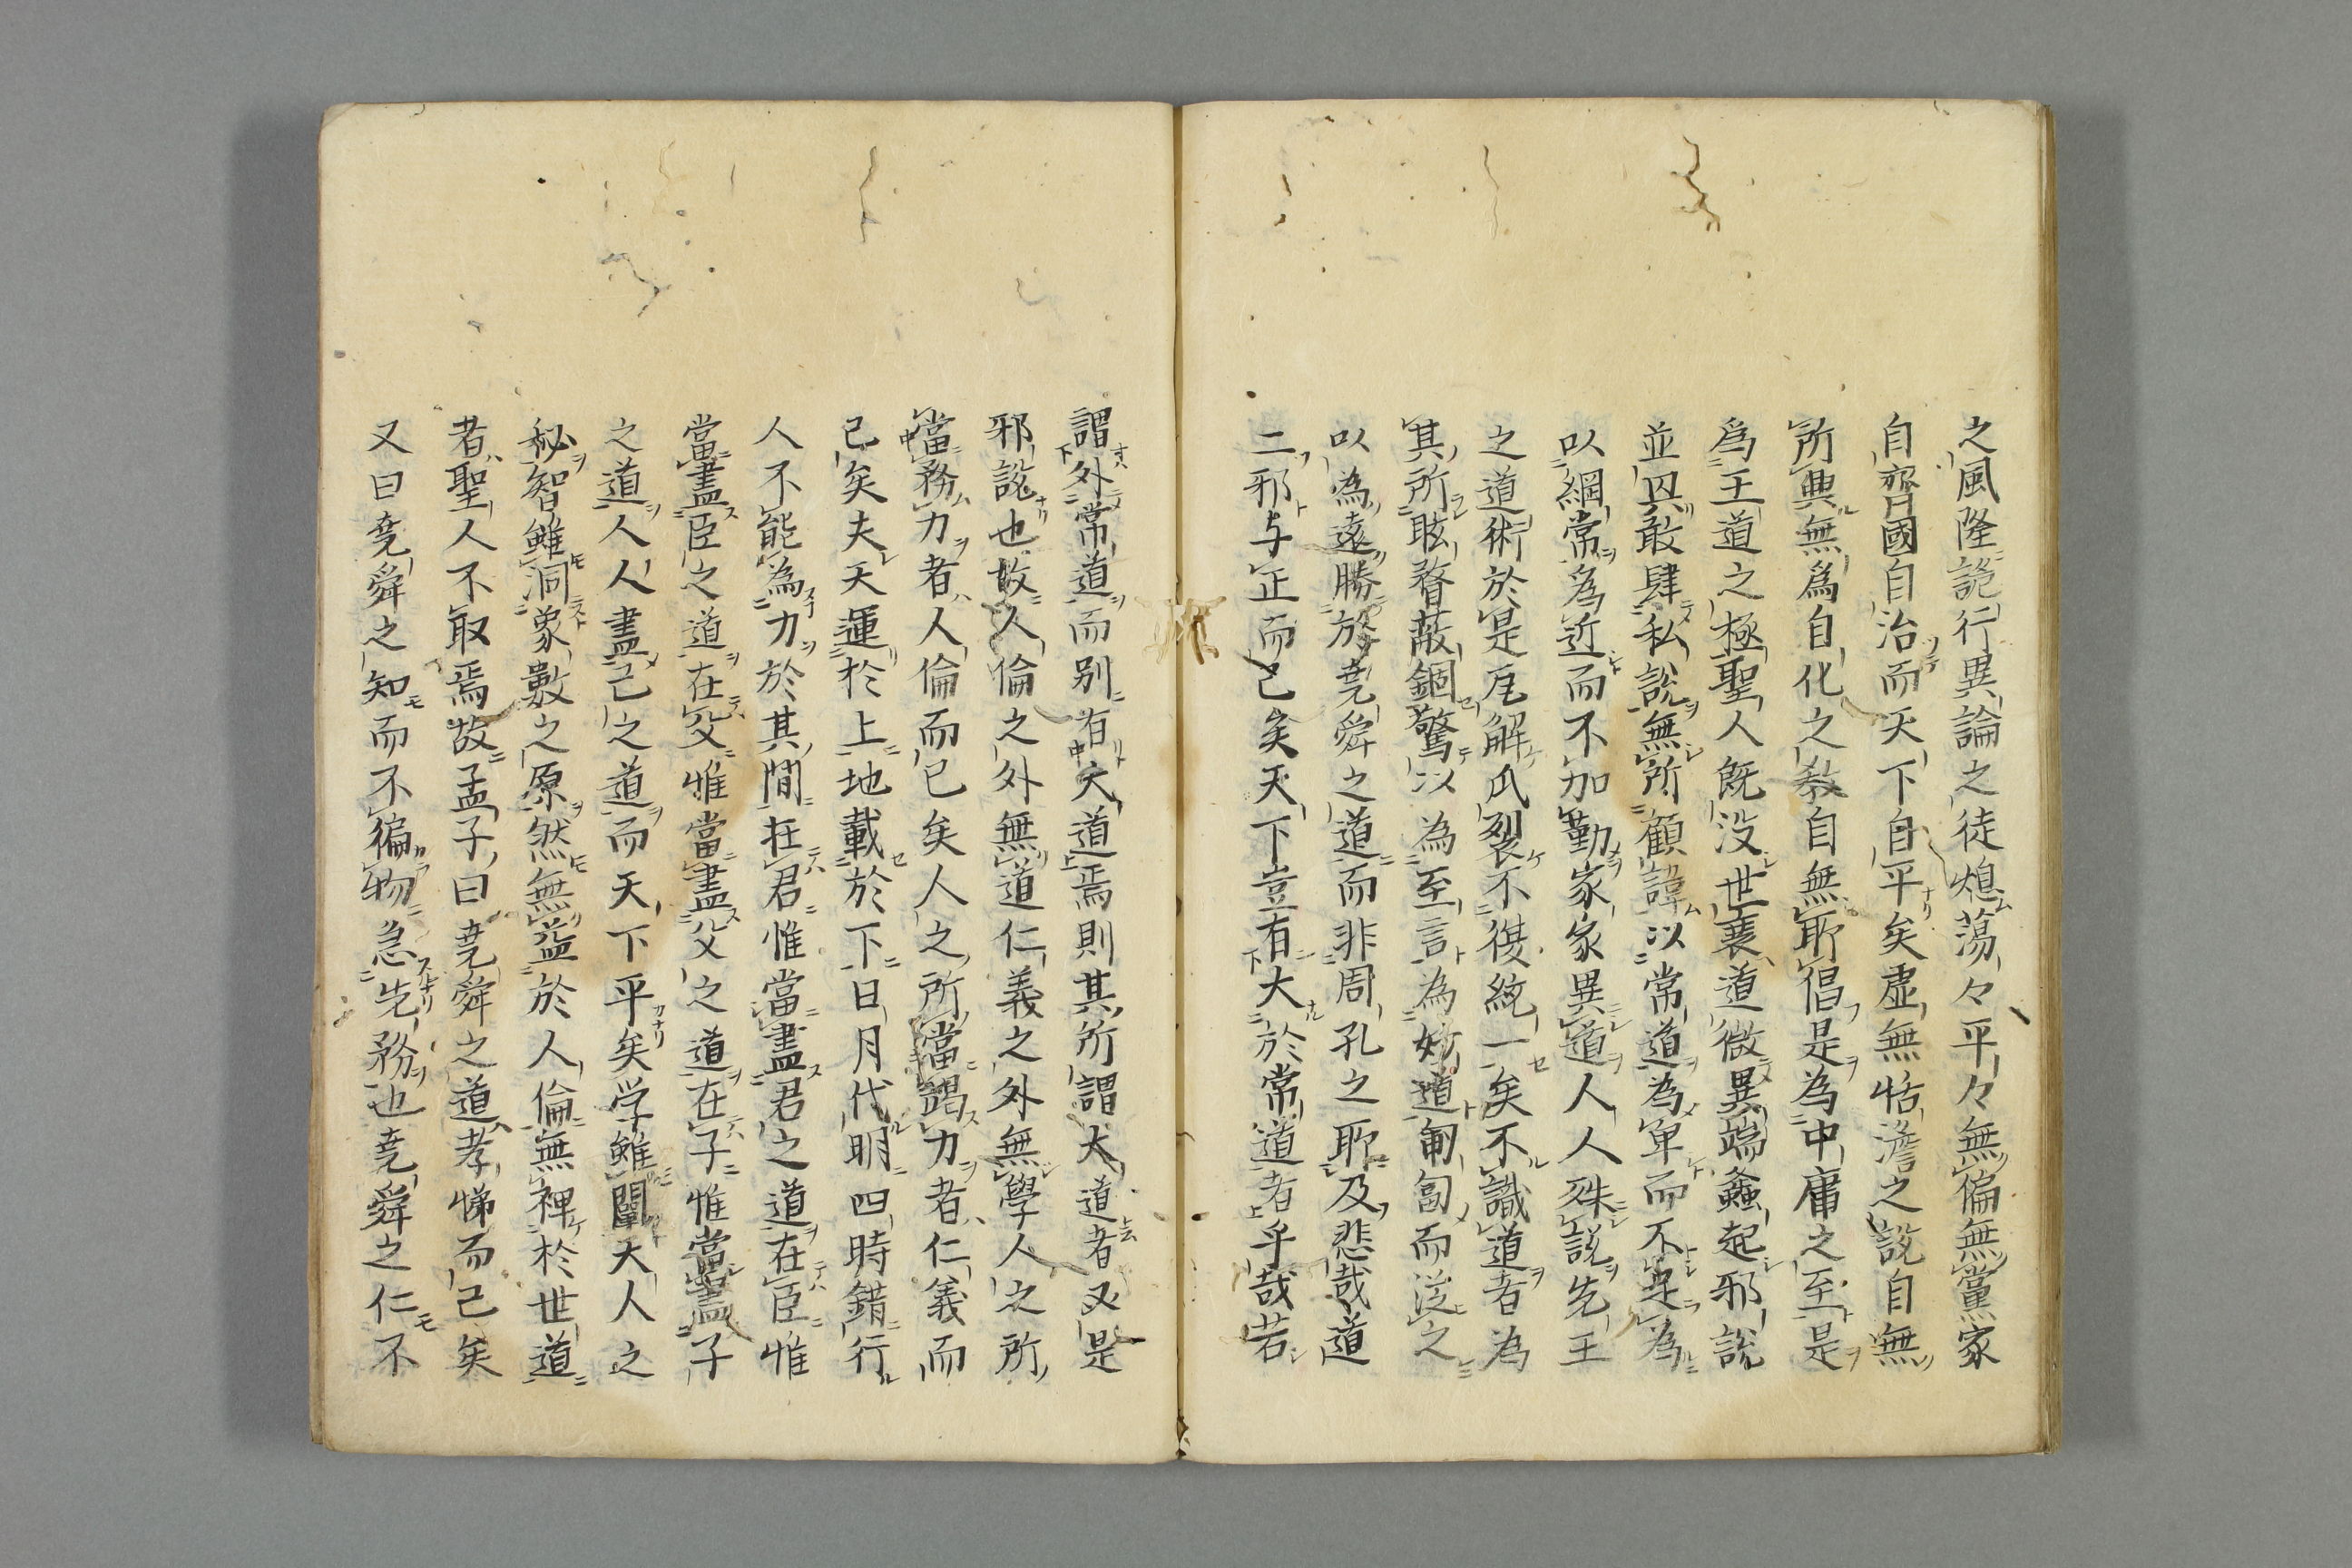 之風隆詭行異論之徒熄蕩々平々無偏無黨家
自齊國自治而天下自平矣虛無恬澹之説自無
所興無爲自化之教自無所倡是為中庸之至是
爲王道之極聖人既没世衰道微異端蠭起邪説
並興敢肆私説無所顧諱以常道為卑而不足為
以綱常為近而不加勤家家異道人人殊説先王
之道術於是瓦解瓜裂不復統一矣不識道者為
其所眩瞀蔽錮驚以為至言為妙道匍匐而從之
以為遠勝於堯舜之道而非周孔之所及悲哉道
二邪与正而已矣天下豈有大於常道者乎哉若
謂外常道而別有大道焉則其所謂大道者又是
邪説也故人倫之外無道仁義之外無學人之所
當務力者人倫而已矣人之所當竭力者仁義而
已矣夫天運於上地載於下日月代明四時錯行
人不能為力於其間在君惟當盡君之道在臣惟
當盡臣之道在父惟當盡父之道在子惟當盡子
之道人人盡己之道而天下平矣学雖闡天人之
秘智雖洞象數之原然無益於人倫無裨於世道
者聖人不取焉故孟子曰堯舜之道孝悌而已矣
又曰堯舜之知而不徧物急先務也堯舜之仁不